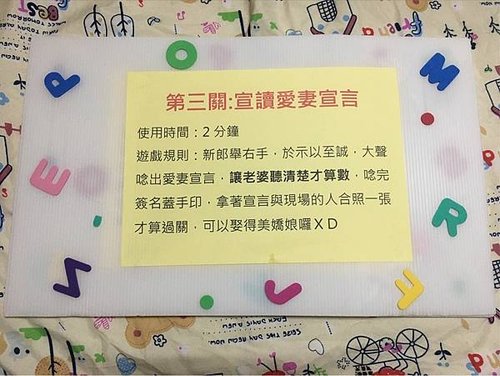 第三關:宣讀愛妻宣言
使用時間：2分鐘
遊戲規則：新郎舉右手，於示以至誠，大聲
唸出愛妻宣言，讓老婆聽清楚才算數，唸完
簽名蓋手印，拿著宣言與現場的人合照一張
才算過關，可以娶得美嬌娘囉XD
P
O
M
E
R
N
J
F